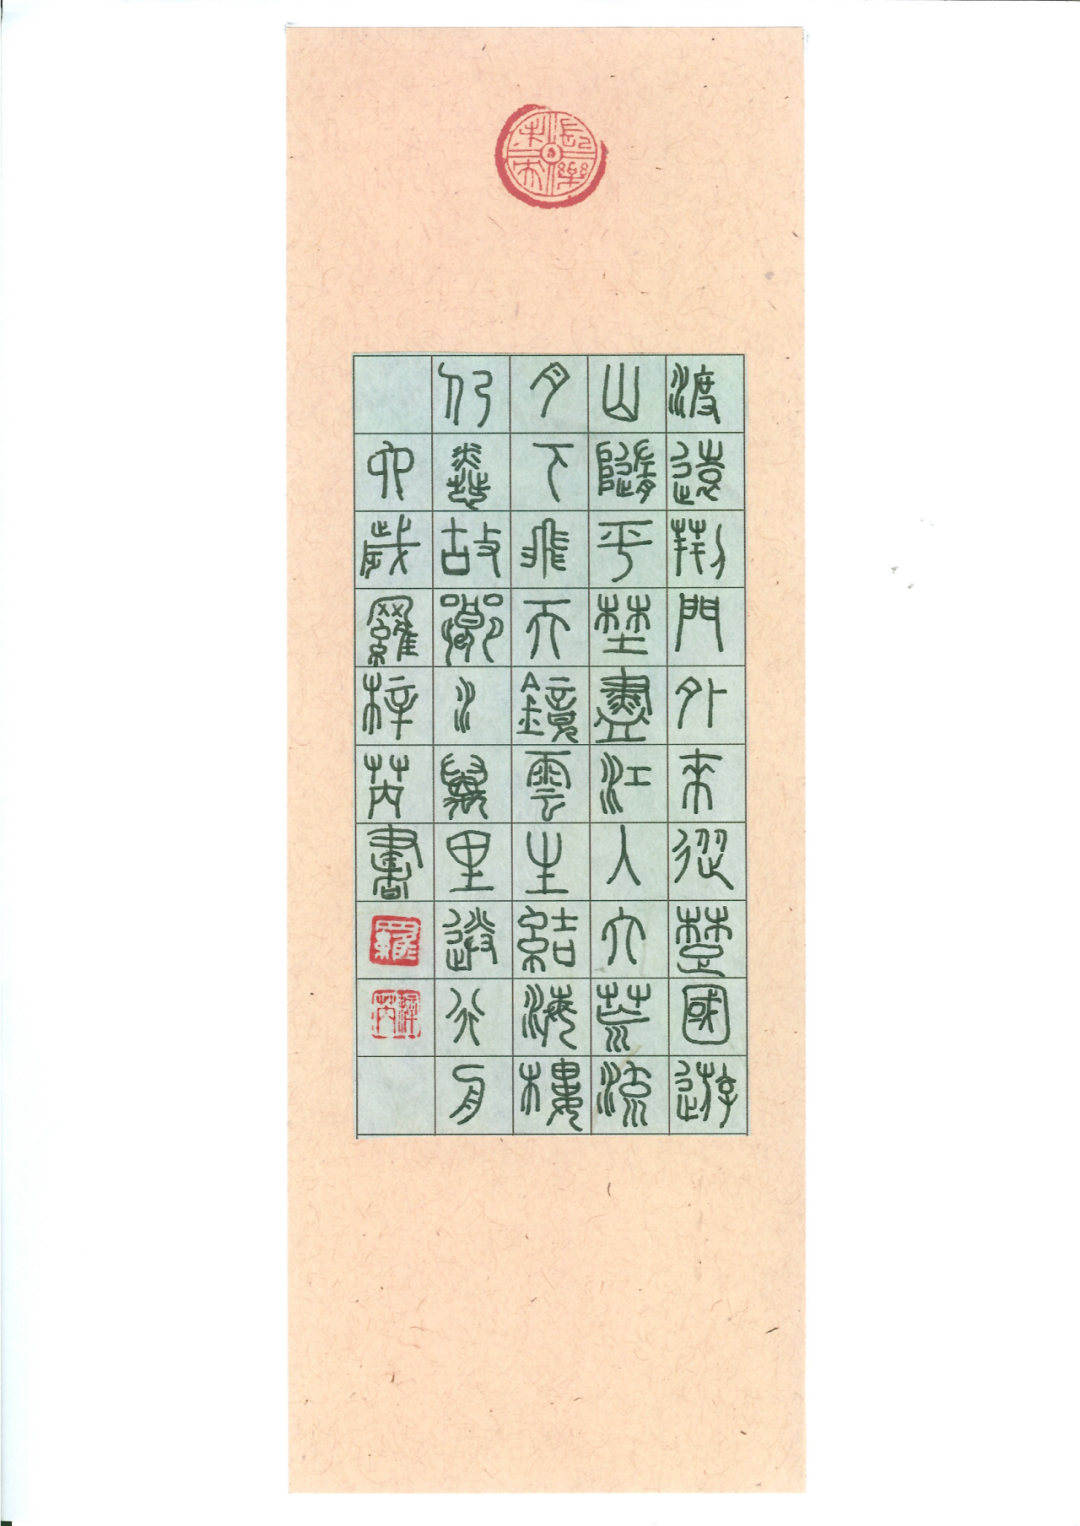 長樂未央
渡遠荊門外來從楚國遊
山隨平埜盡江入大荒流
月下飛天鏡雲生結海樓
仍憐故鄉水萬里送行舟
卯歲羅梓芮書
羅
梓芮